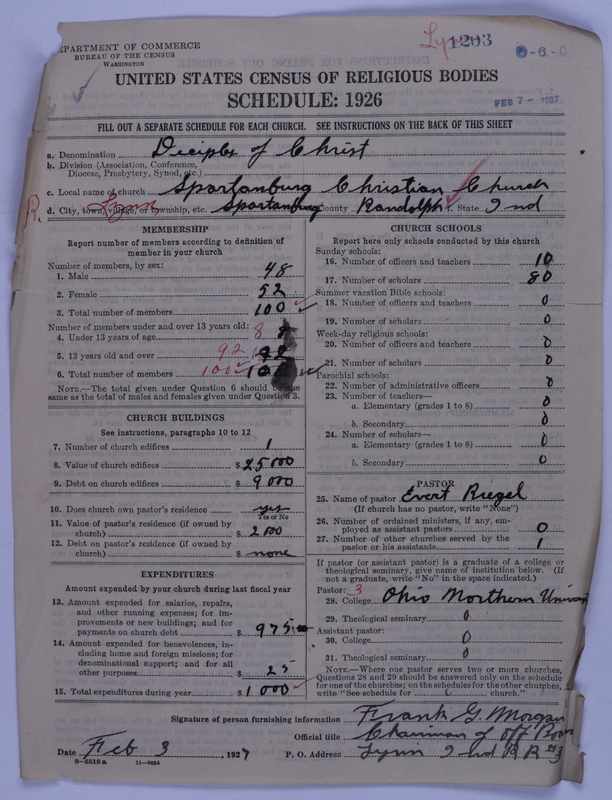 Lynn 1203
DEPARTMENT OF COMMERCE
BUREAU OF THE CENSUS
WASHINGTON
FEB 7 - 1927
UNITED STATES CENSUS OF RELIGIOUS BODIES
SCHEDULE: 1926
FILL OUT A SEPARATE SCHEDULE FOR EACH CHURCH. SEE INSTRUCTIONS ON THE BACK OF THIS SHEET
a. Denomination Diciples of Christ
b. Division (Association, Conference, Diocese, Presbytery, Synod, etc.)
c. Local name of church Spartanburg Christian Church
R. d. City, town, village, or township, etc. Lynn Spartanburg County Randolph State Ind
MEMBERSHIP
Report number of members according to definition of
member in your church
Number of members, by sex:
1. Male 48
2. Female 52
3. Total number of members 100
Number of members under and over 13 years old:
4. Under 13 years of age 8 8
5. 13 years old and over 92 92
6. Total number of members 100 100
NOTE.—The total given under Question 6 should be
same as the total of males and females given under Question 3.
CHURCH BUILDINGS
See instructions, paragraphs 10 to 12
7. Number of church edifices 1
8. Value of church edifices $ 25000
9. Debt on church edifices $ 9000
10. Does church own pastor's residence yes
Yes or No
11. Value of pastor's residence (if owned by
church) $ 2000
12. Debt on pastor's residence (if owned by
church) $ none
EXPENDITURES
Amount expended by your church during last fiscal year
13. Amount expended for salaries, repairs,
and other running expenses; for im-
provements or new buildings; and for
payments on church debt $ 975
14. Amount expended for benevolences, in-
cluding home and foreign missions; for
denominational support; and for all
other purposes $ 25
15. Total expenditures during year $ 1000
CHURCH SCHOOLS
Report here only schools conducted by this church
Sunday schools:
16. Number of officers and teachers 10
17. Number of scholars 80
Summer vacation Bible schools:
18. Number of officers and teachers 0
19. Number of scholars 0
Week-day religious schools:
20. Number of officers and teachers 0
21. Number of scholars 0
Parochial schools:
22. Number of administrative officers 0
23. Number of teachers—
a. Elementary (grades 1 to 8) 0
b. Secondary 0
24. Number of scholars—
a. Elementary (grades 1 to 8) 0
b. Secondary 0
PASTOR
25. Name of pastor Evert Riegel
(If church has no pastor, write "None")
26. Number of ordained ministers, if any, em-
ployed as assistant pastors 0
27. Number of other churches served by the
pastor or his assistants 1
If pastor (or assistant pastor) is a graduate of a college or
theological seminary, give name of institution below. (If
not a graduate, write "No" in the space indicated.)
Pastor: 3
28. College Ohio Northern Univer
29. Theological seminary 0
Assistant pastor:
30. College 0
31. Theological seminary 0
NOTE.—Where one pastor serves two or more churches,
Questions 28 and 29 should be answered only on the schedule
for one of the churches; on the schedules for the other churches,
write "See schedule for church."
Signature of person furnishing information Frank G. Morgan
Official title Chairman of Off Boar
Date Feb 3, 1927
P. O. Address Lynn Ind RR #3
8—5518a 11—9064